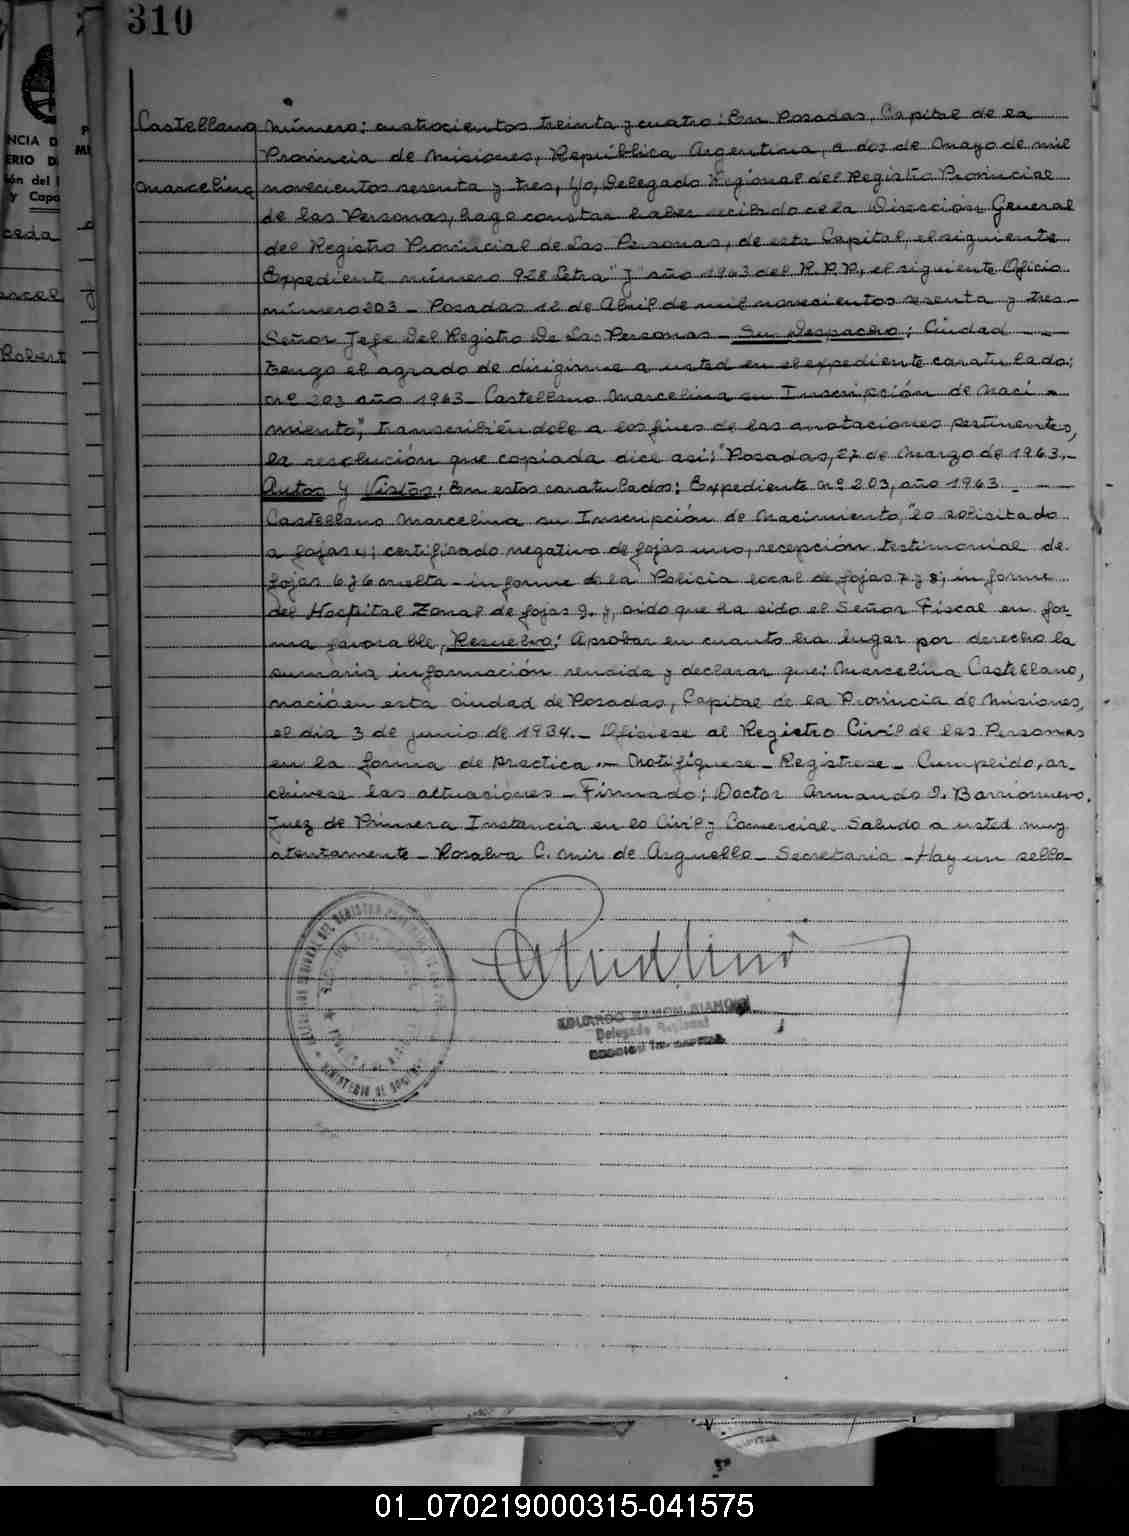 310
Castellano Número: cuatrocientos treinta y cuatro: En Posadas, Capital de la
Provincia de Misiones, República Argentina, a dos de Mayo de mil
Marcelina novecientos sesenta y tres, Yo, Delegado Regional del Registro Provincial
de las Personas, hago constar haber recibido de la Dirección General
del Registro Provincial de Las Personas, de esta Capital, el siguiente
Expediente número 928 Letra "J" año 1963 del R.P.P., el siguiente Oficio
número 203 - Posadas 12 de Abril de mil novecientos sesenta y tres -
Señor Jefe Del Registro De Las Personas - Su Despacho; Ciudad - -
Tengo el agrado de dirigirme a usted en el expediente caratulado:
nº 203 año 1963 - Castellano Marcelina su Inscripción de Naci -
miento", transcribiéndole a los fines de las anotaciones pertinentes,
la resolución que copiada dice así: "Posadas, 27 de Marzo de 1963.-
Autos y Vistos: En estos caratulados: Expediente nº 203, año 1963. - -
Castellano Marcelina su Inscripción de Nacimiento, "lo solicitado
a fojas 4; certificado negativo de fojas uno, recepción testimonial de
fojas 6 y 6 vuelta - informe de la Policía local de fojas 7 y 8; informe
del Hospital Zonal de fojas 9. y, oido que ha sido el Señor Fiscal en for-
ma favorable, Resuelvo: Aprobar en cuanto ha lugar por derecho la
sumaria información rendida y declarar que: Marcelina Castellano,
nació en esta ciudad de Posadas, Capital de la Provincia de Misiones,
el día 3 de junio de 1934.- Ofíciese al Registro Civil de las Personas
en la forma de practica .- Notifíquese - Regístrese - Cumplido, ar-
chívese las actuaciones - Firmado: Doctor Armando I. Barrionuevo.
Juez de Primera Instancia en lo Civil y Comercial. Saludo a usted muy
atentamente - Rosalva C. Mir de Arguello - Secretaria - Hay un sello -
EDUARDO RAMON
Delegado Regional
01_070219000315-041575